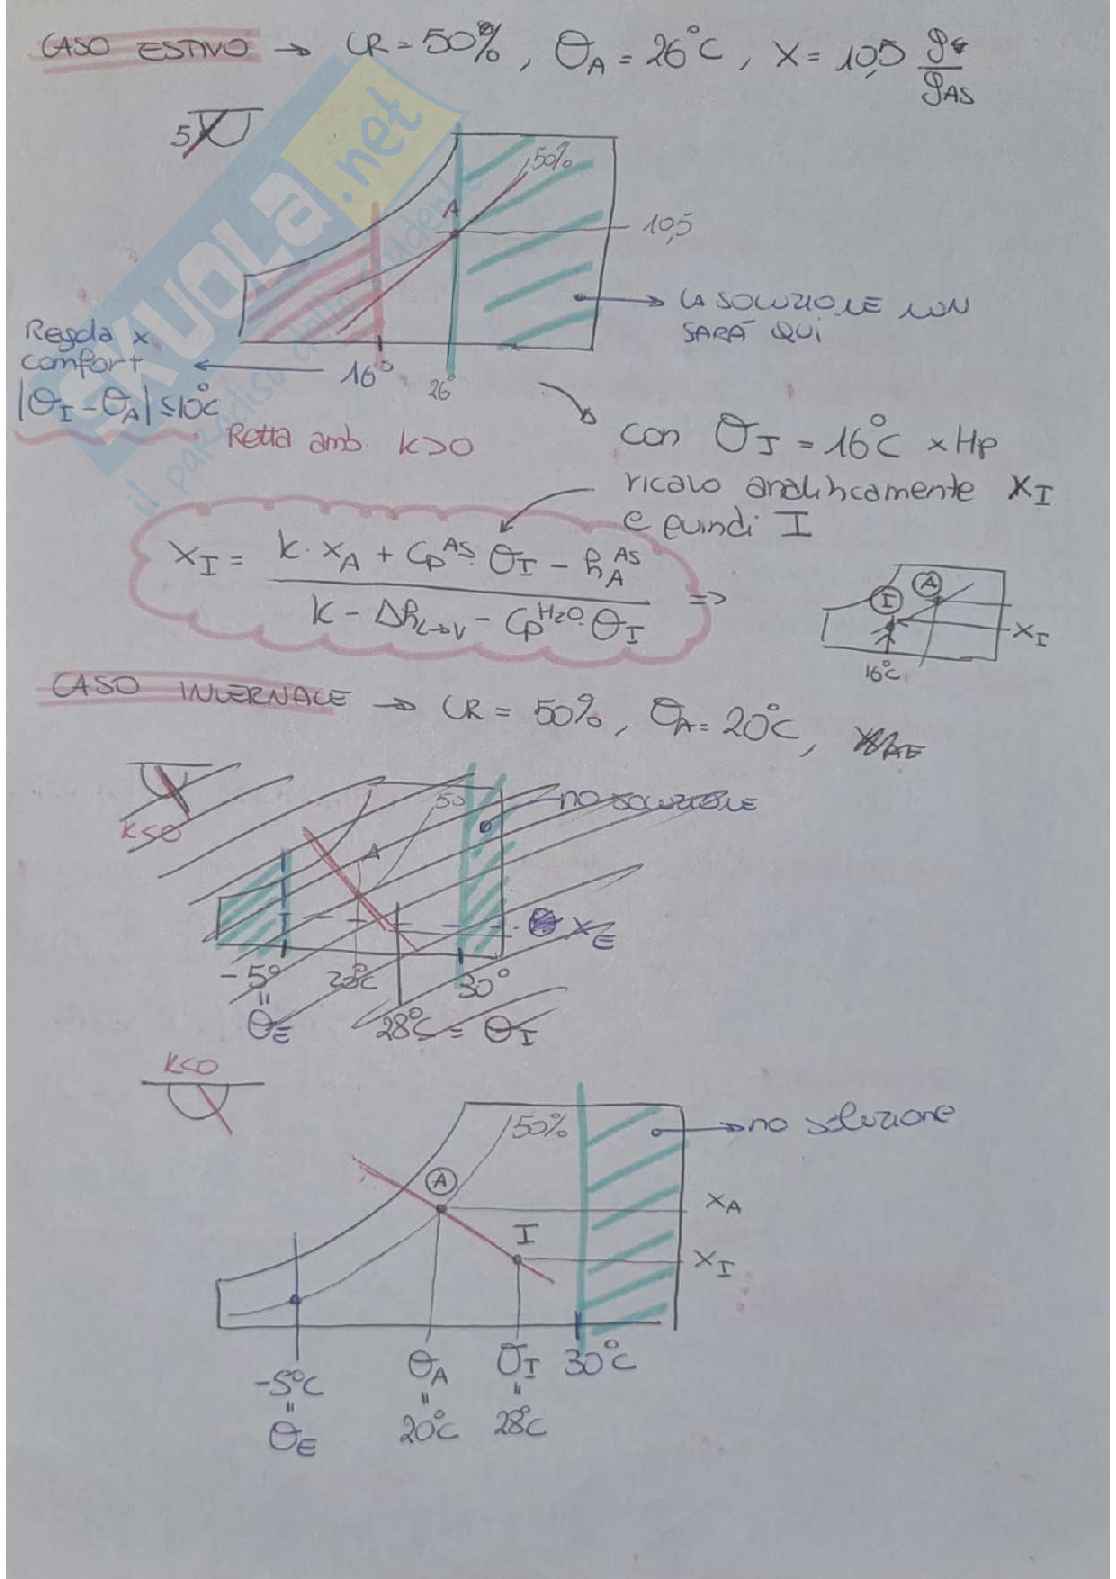 CASO ESTIVO → UR = 50% , ΘA = 26°C , X = 10,5 gv/gAS
5
50%
A
10,5
LA SOLUZIONE NON
SARÀ QUI
Regola x
comfort
|ΘI - ΘA| ≤ 10°C
16°
26°
Retta amb. k>0
con ΘI = 16°C x Hp
ricavo analiticamente XI
e quindi I
XI = (k · XA + CpAS · ΘI - hAAS) / (k - ΔhL→V - CpH2O · ΘI) =>
I A
XI
16°C
CASO INVERNALE → UR = 50% , ΘA = 20°C ,
k≤0
50
no soluzione
A
XE
-5° 20°C 30°
=
ΘE 28°C = ΘI
k<0
50%
no soluzione
A
XA
I
XI
-5°C ΘA ΘI 30°C
= = =
ΘE 20°C 28°C
SKUOLA.net